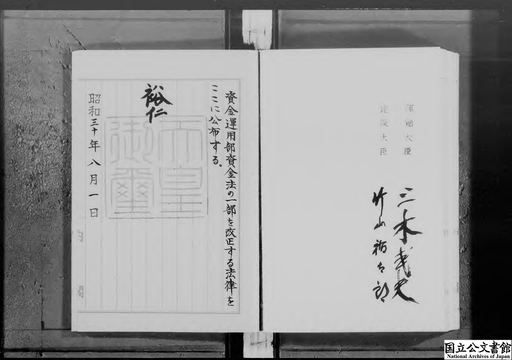 運輸大臣
建設大臣
三木武夫
竹山祐太郎
資金運用部資金法の一部を改正する法律を
ここに公布する。
裕仁
天皇御璽
昭和三十年八月一日
国立公文書館
National Archives of Japan